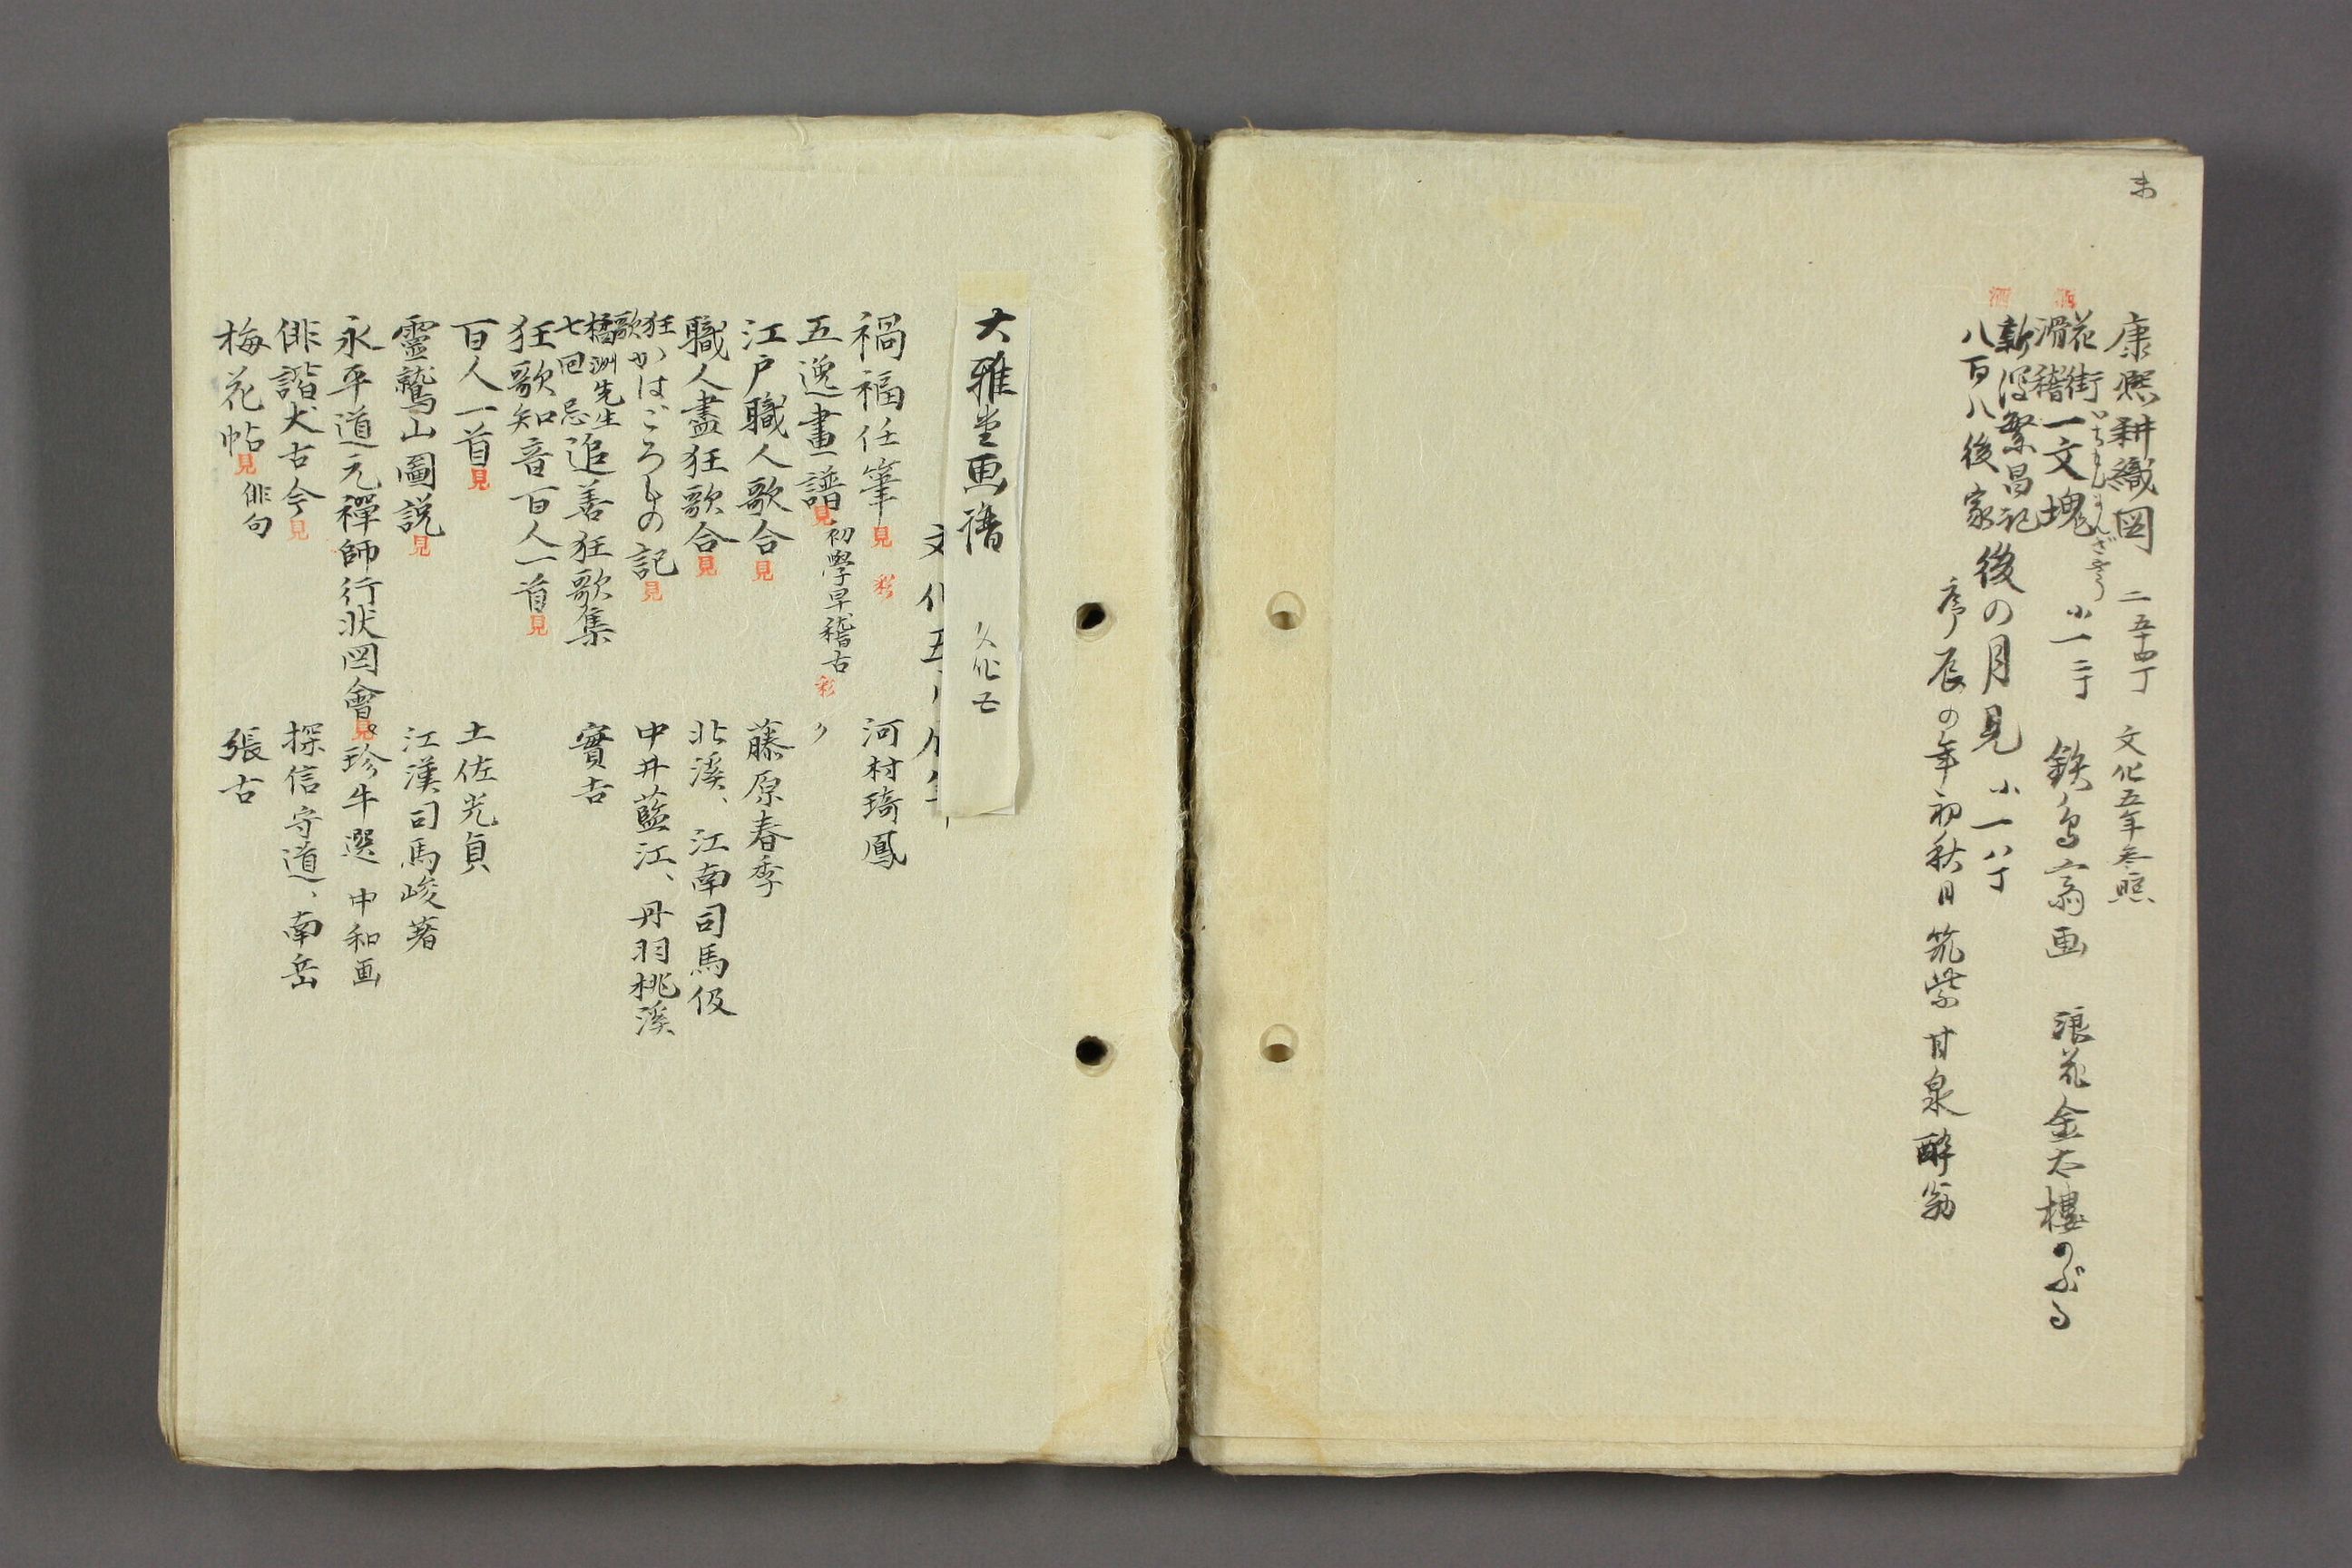 康熈耕織図 二 五十四丁 文化五年参照
花街
滑稽 一文塊 小一 二十丁 鉄鳥翁画 浪花金太樓のぶる
新
繁昌記
八百八後家 後の月見 小一 八丁
序 辰の年初秋日 筑紫 甘泉酔翁
大雅堂画譜 文化五
文化五
禍福任筆 見 彩 河村琦鳳
五逸畫譜 見 初學早稽古 彩 〃
江戸職人歌合 見 藤原春季
職人盡狂歌合 見 北溪、江南司馬伋
狂歌 かはごろもの記 見 中井藍江、丹羽桃溪
橘洲先生
七回忌 追善狂歌集 實吉
狂歌知音百人一首 見
百人一首 見 土佐光貞
靈鷲山圖説 見 江漢司馬峻著
永平道元禪師行状図會 見 珍牛選 中和画
俳諧犬古今 見 探信守道、南岳
梅花帖 見 俳句 張古